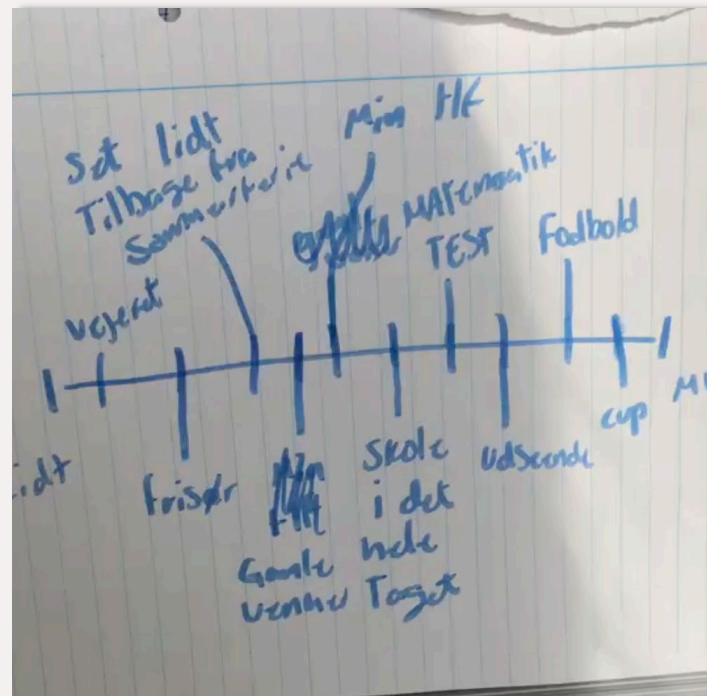 Set lidt
Tilbage fra
Sommerferie
Min HF
MATematik
TEST
Fodbold
Vejret
idt
Frisør
Gamle
venner
Skole
i det
hele
Taget
Udseende
cup
M